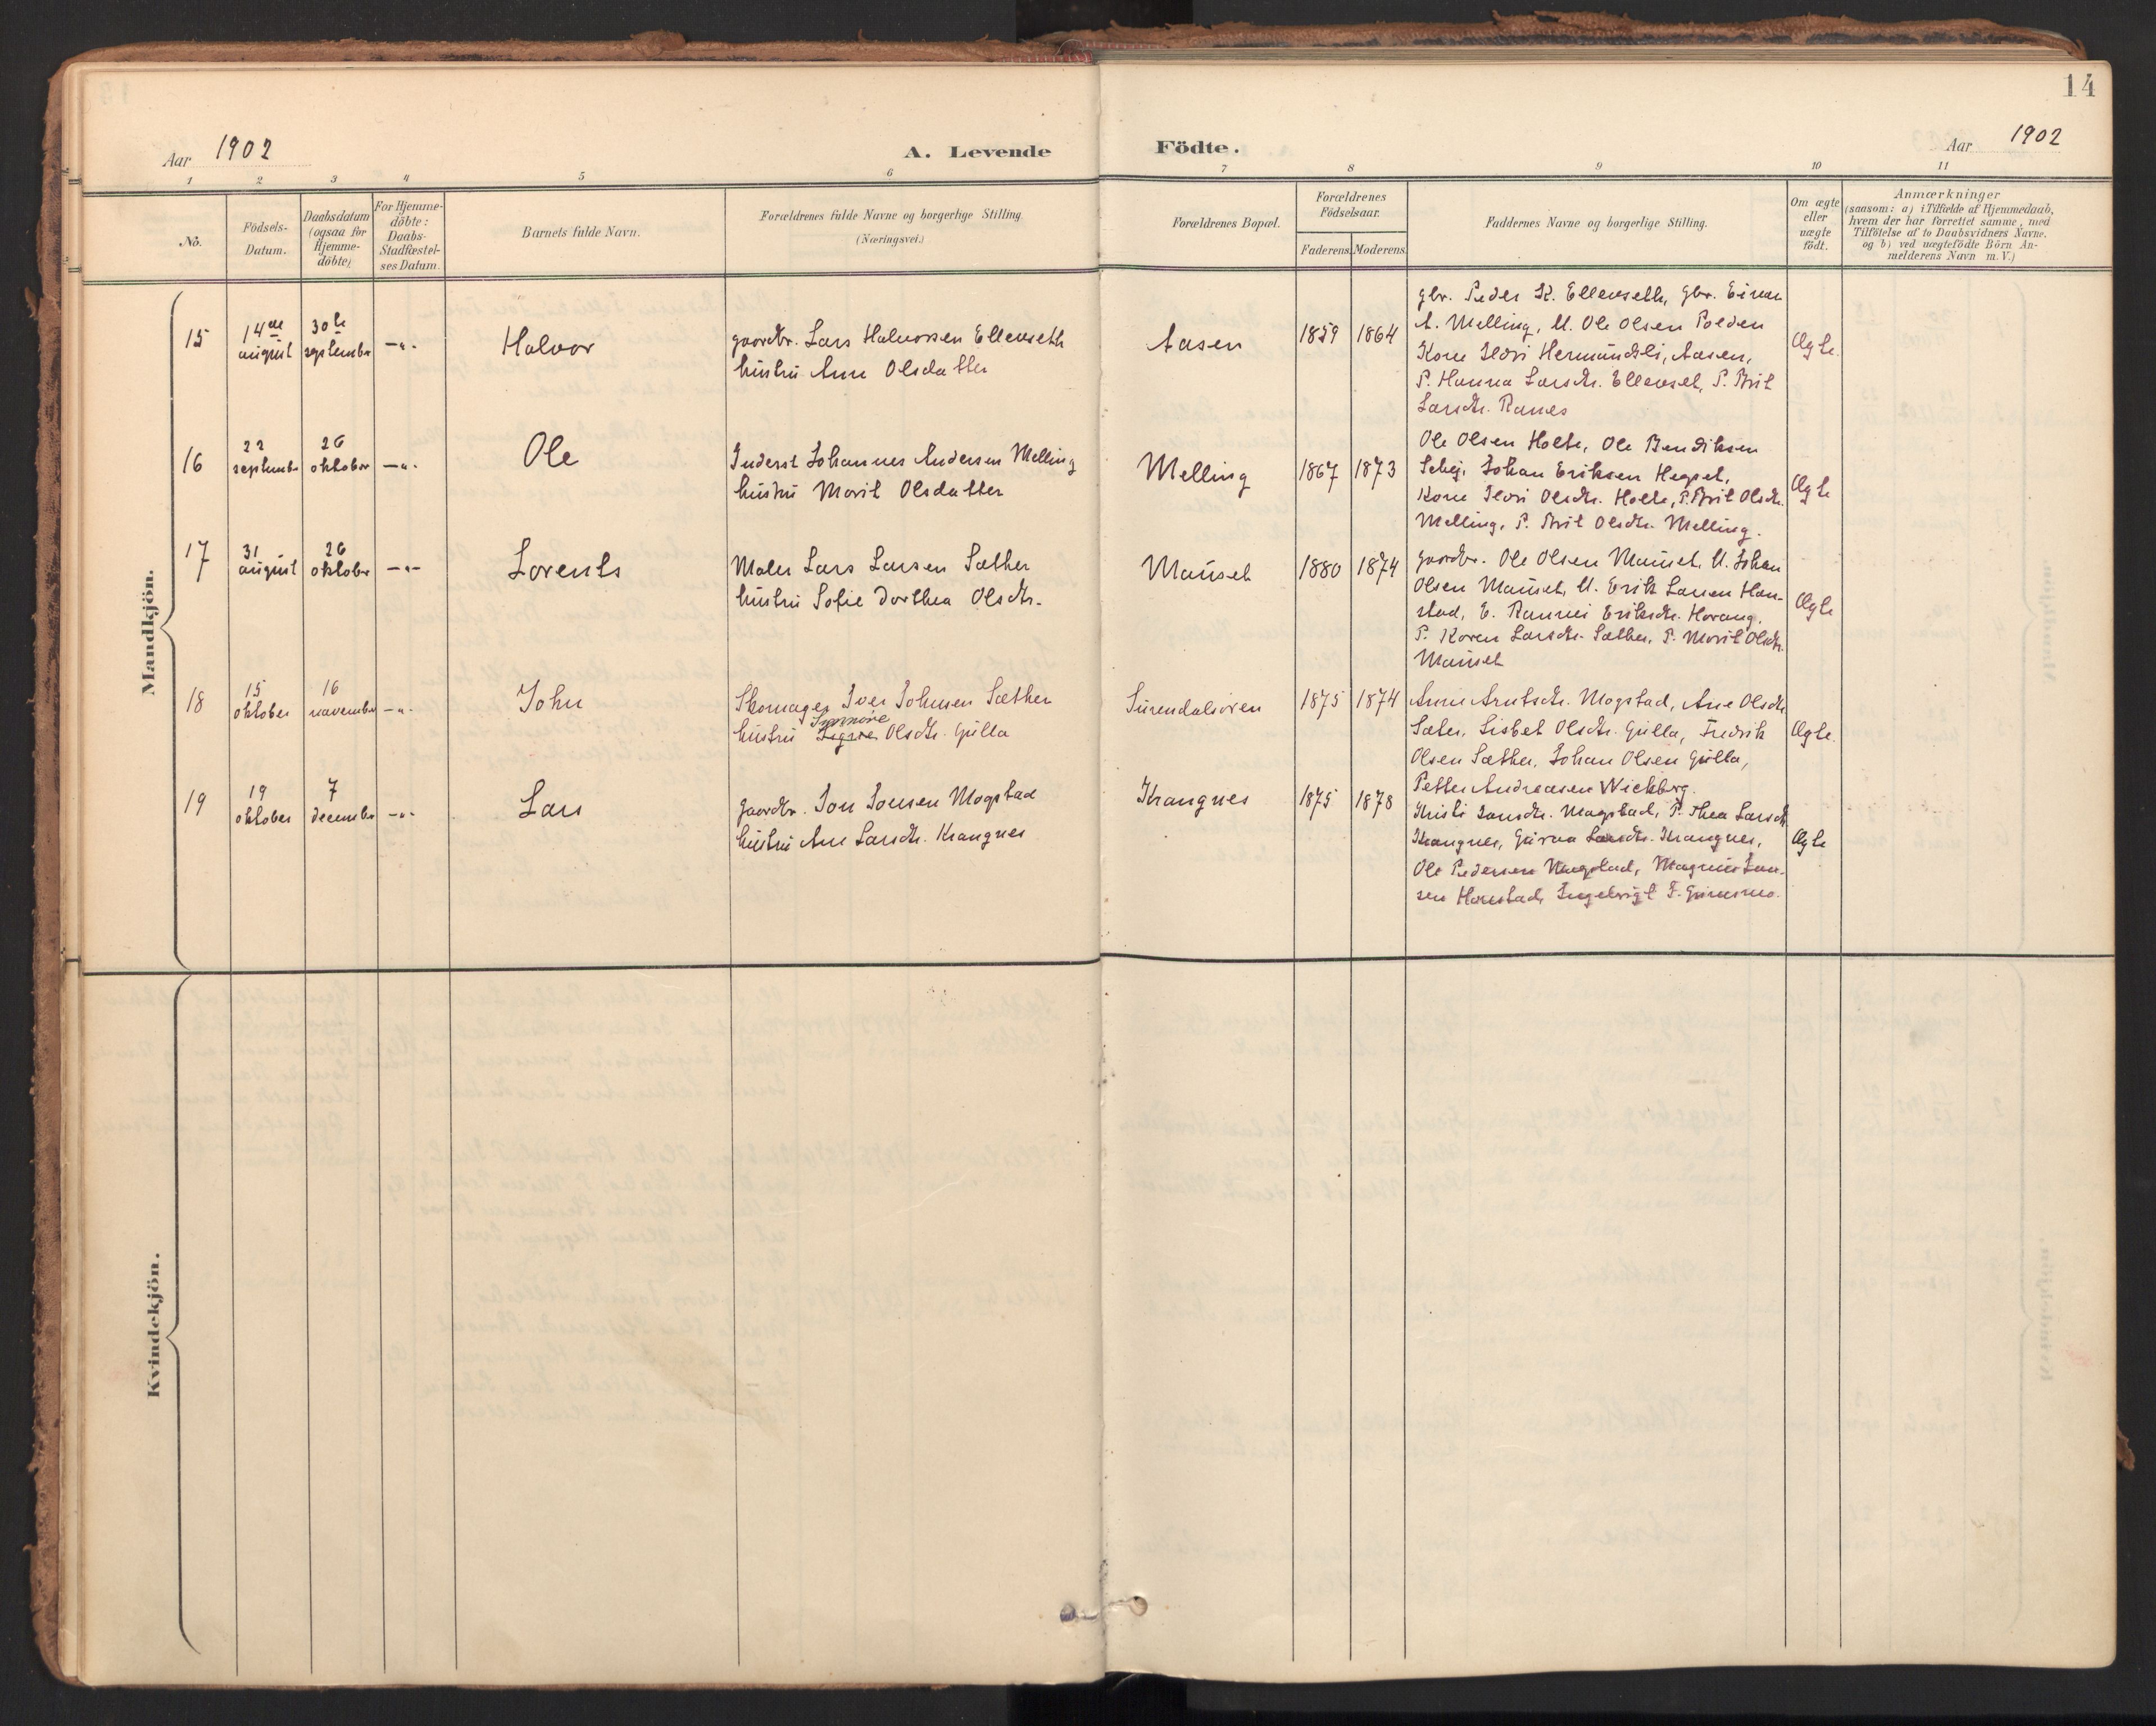 14
Aar 1902
A. Levende
Födte.
Aar 1902
1 2 3 4 5 6 7 8 9 10 11
No.
Födsels-
Datum.
Daabsdatum
(ogsaa for
Hjemme-
döbte)
For Hjemme-
döbte:
Daabs-
Stadfæstel-
ses Datum.
Barnets fulde Navn.
Forældrenes fulde Navne og borgerlige Stilling
(Næringsvei.)
Forældrenes Bopæl.
Forældrenes
Födselsaar.
Faderens.
Moderens.
Faddernes Navne og borgerlige Stilling.
Om ægte
eller
uægte
födt.
Anmærkninger
(saasom: a) i Tilfælde af Hjemmedaab,
hvem der har forrettet samme, med
Tilföielse af to Daabsvidners Navne,
og b) ved uægtefödte Börn An-
melderens Navn m. V.)
Mandkjön.
15
14de
august
30te
september
-"-
Halvor
gaardbr. Lars Halvorsen Ellevseth
hustru Ane Olsdatter
Aasen
1859
1864
gbr. Peder K. Ellevseth, gbr. Einar
A. Melling, U. Ole Olsen Polden
Kone Ildri Hermundsli, Aasen,
P. Hanna Larsdtr. Ellevset, P. Brit
Larsdtr. Ranes
Ægte.
16
22
september
26
oktober
-"-
Ole
Inderst Johannes Andersen Melling
hustru Marit Olsdatter
Melling
1867
1873
Ole Olsen Holte, Ole Bendiksen
Schej, Johan Eriksen Hegset,
Kone Ildri Olsdtr. Holte, P. Brit Olsdtr.
Melling, P. Brit Olsdtr. Melling.
Ægte
17
31
august
26
oktober
-"-
Lorents
Maler Lars Larsen Sæther
hustru Sofie Dorthea Olsdtr.
Mauset
1880
1874
gaardbr. Ole Olsen Mauset, U. Johan
Olsen Mauset, U. Erik Larsen Han-
stad, E. Rannei Eriksdtr. Harang,
P. Karen Larsdtr. Sæther, P. Marit Olsdtr.
Mauset
Ægte
18
15
oktober
16
november
-"-
John
Skomager Iver Johnsen Sæther
hustru Olsdtr. Gulla
Surendalsören
1875
1874
Anne Arntsdtr. Mogstad, Ane Olsdtr.
Sæter, Lisbet Olsdtr. Gulla, Fredrik
Olsen Sæther, Johan Olsen Gulla,
Petter Andreasen Wickbrg.
Ægte.
19
19
oktober
7
december
-"-
Lars
gaardbr. Jon Jonsen Mogstad
hustru Ane Larsdtr. Krangnes
Krangnes
1875
1878
Kristi Jonsdtr. Mogstad, P. Thea Larsdtr
Krangnes, Guroa Larsdtr. Krangnes,
Ole Pedersen Mogstad, Magnus Lar-
sen Hanstad, Ingebrigt F.
Ægte
Kvindekjön.